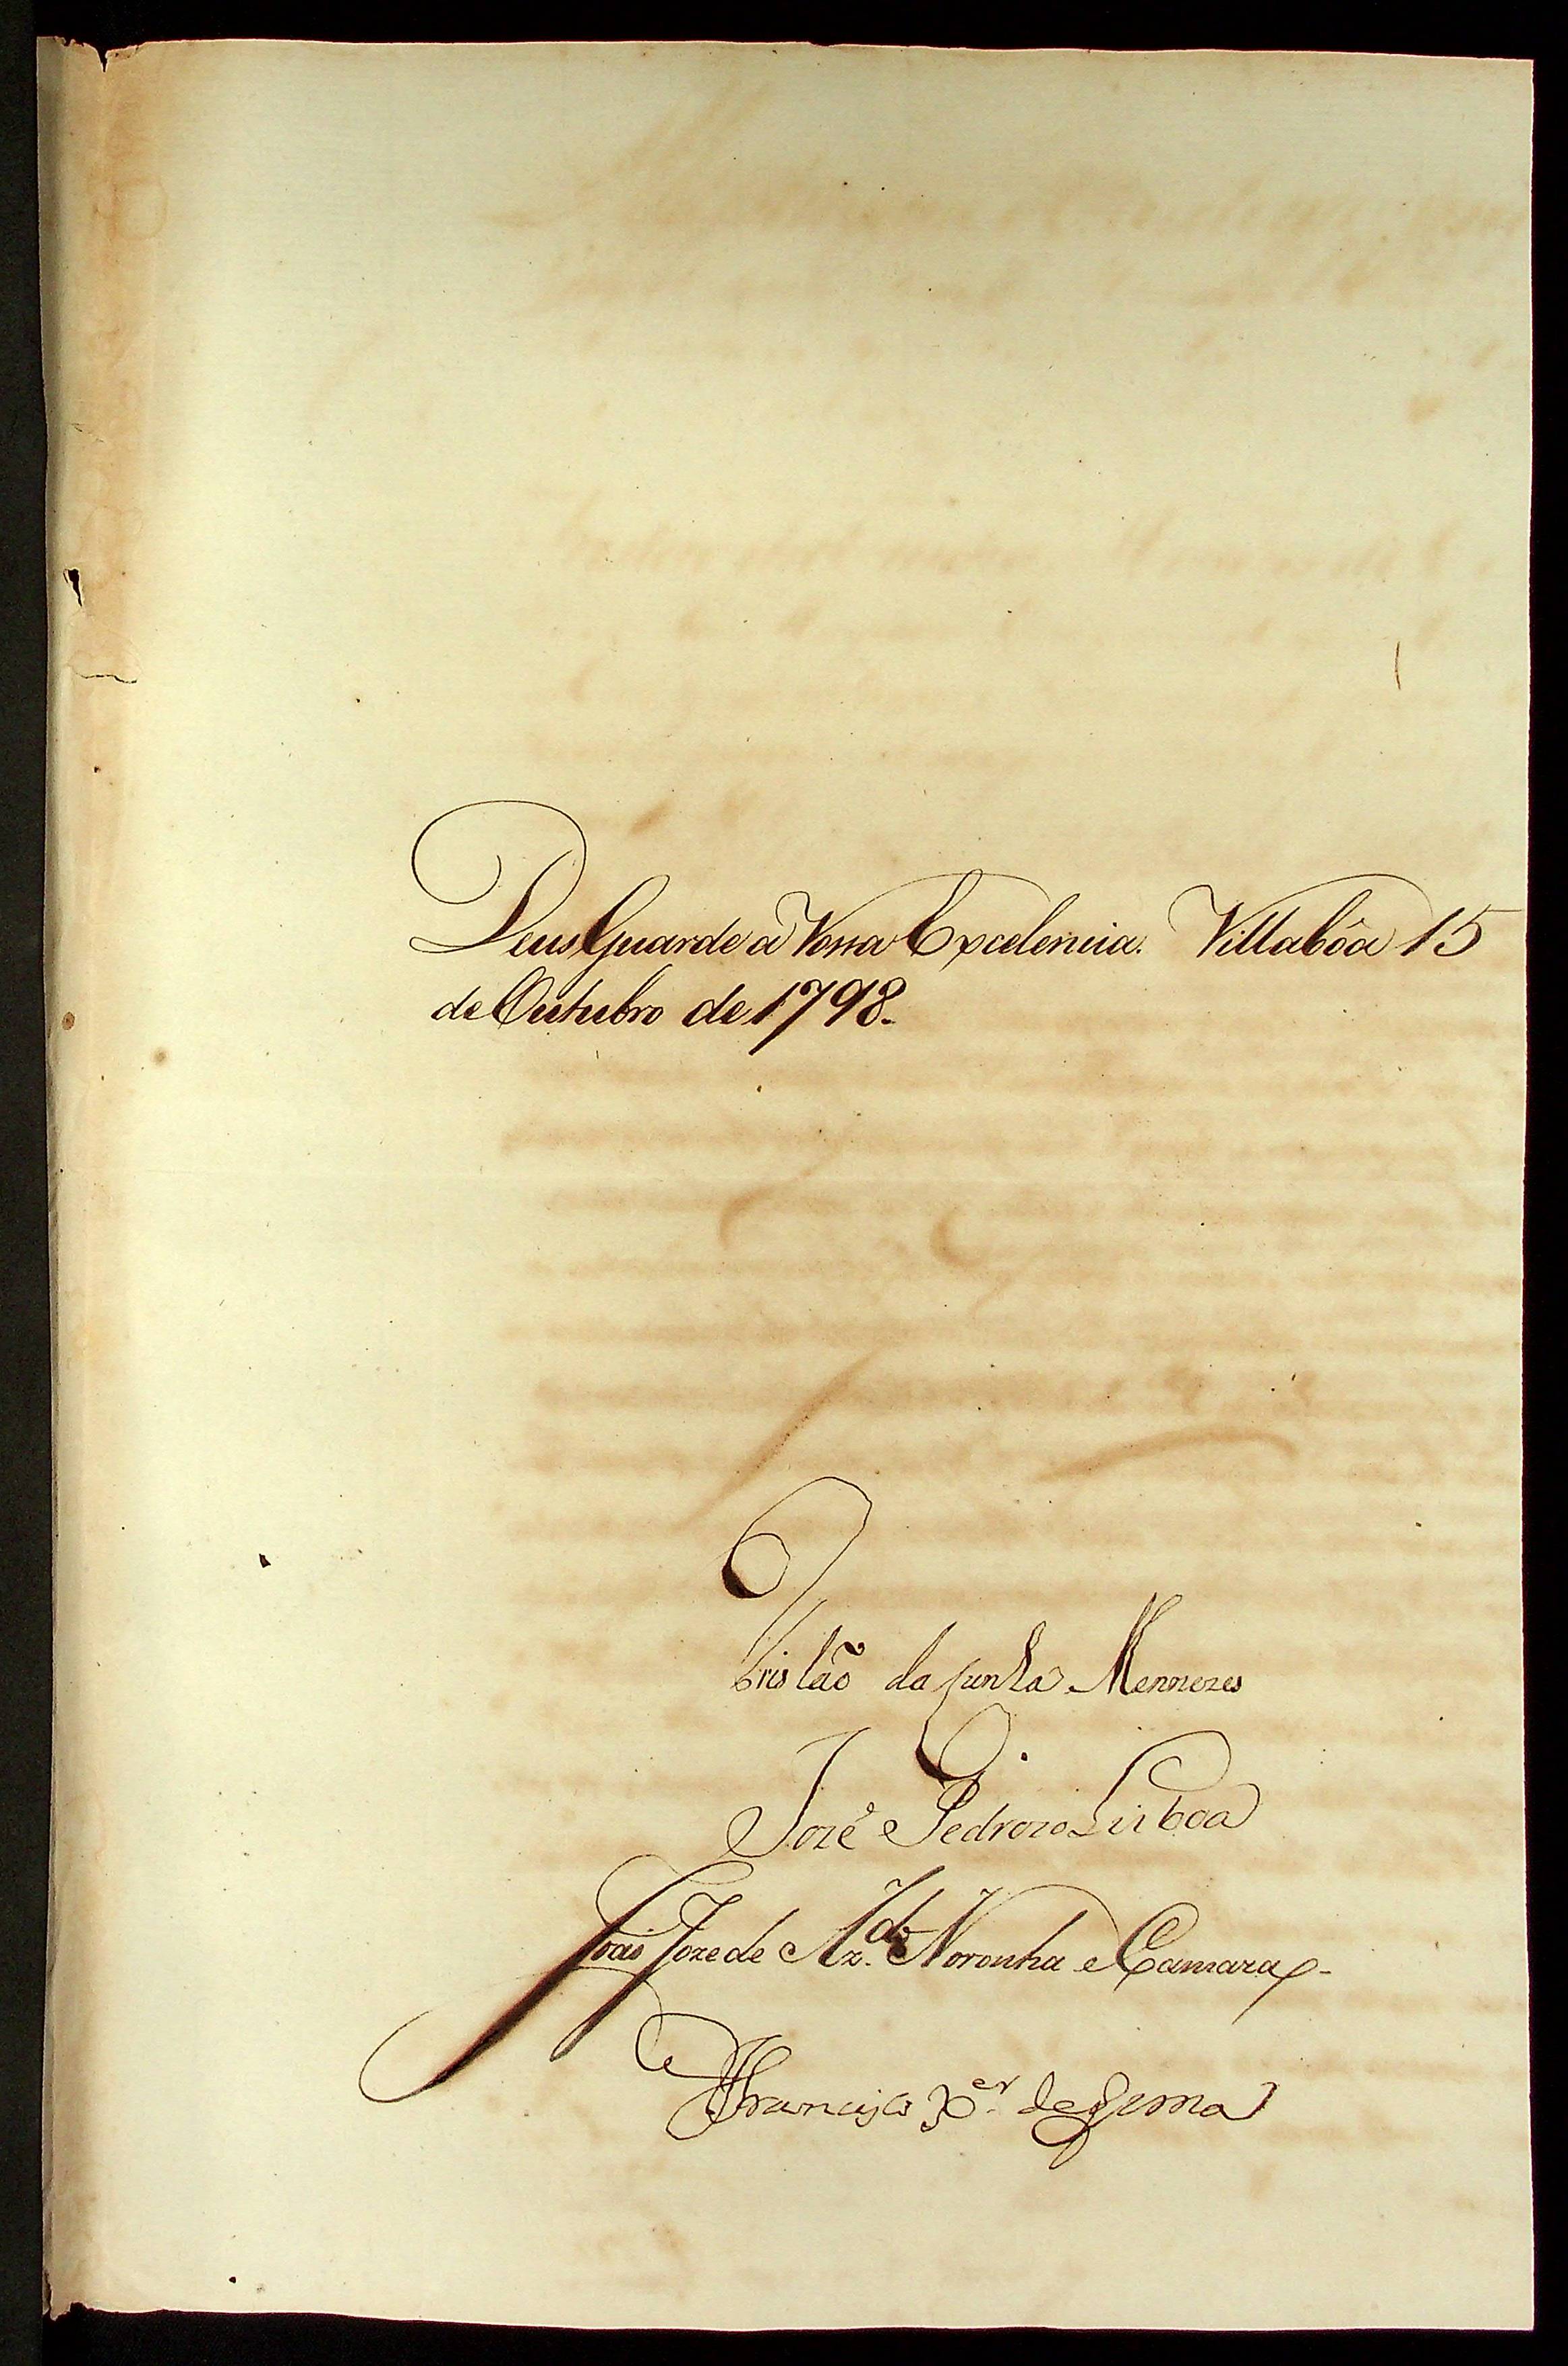 Deus Guarde a Vossa Excelencia. Villabôa 15
de Outubro de 1798.
Tristão da Cunha Menezes
Jozé Pedrozo Lisboa
João Joze de Az.do Noronha e Camara
Francisco X.er de